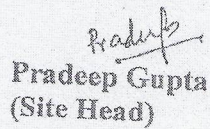 Pradeep
Pradeep Gupta
(Site Head)